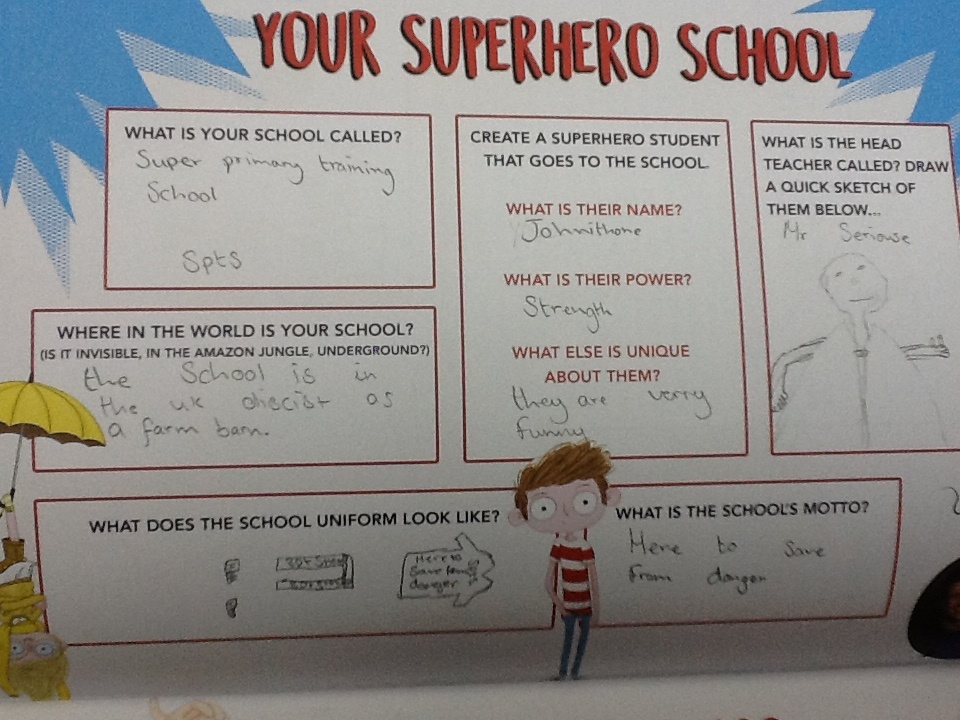 YOUR SUPERHERO SCHOOL
WHAT IS YOUR SCHOOL CALLED?
Super primary training
School
Spts
WHERE IN THE WORLD IS YOUR SCHOOL?
(IS IT INVISIBLE, IN THE AMAZON JUNGLE, UNDERGROUND?)
the School is in
the uk discist as
a farm barn.
CREATE A SUPERHERO STUDENT
THAT GOES TO THE SCHOOL.
WHAT IS THEIR NAME?
Johnithone
WHAT IS THEIR POWER?
Strength
WHAT ELSE IS UNIQUE
ABOUT THEM?
they are verry
funny
WHAT IS THE HEAD
TEACHER CALLED? DRAW
A QUICK SKETCH OF
THEM BELOW...
Mr Seriouse
WHAT DOES THE SCHOOL UNIFORM LOOK LIKE?
Here to
Save from
danger
WHAT IS THE SCHOOL'S MOTTO?
Here to save
from danger